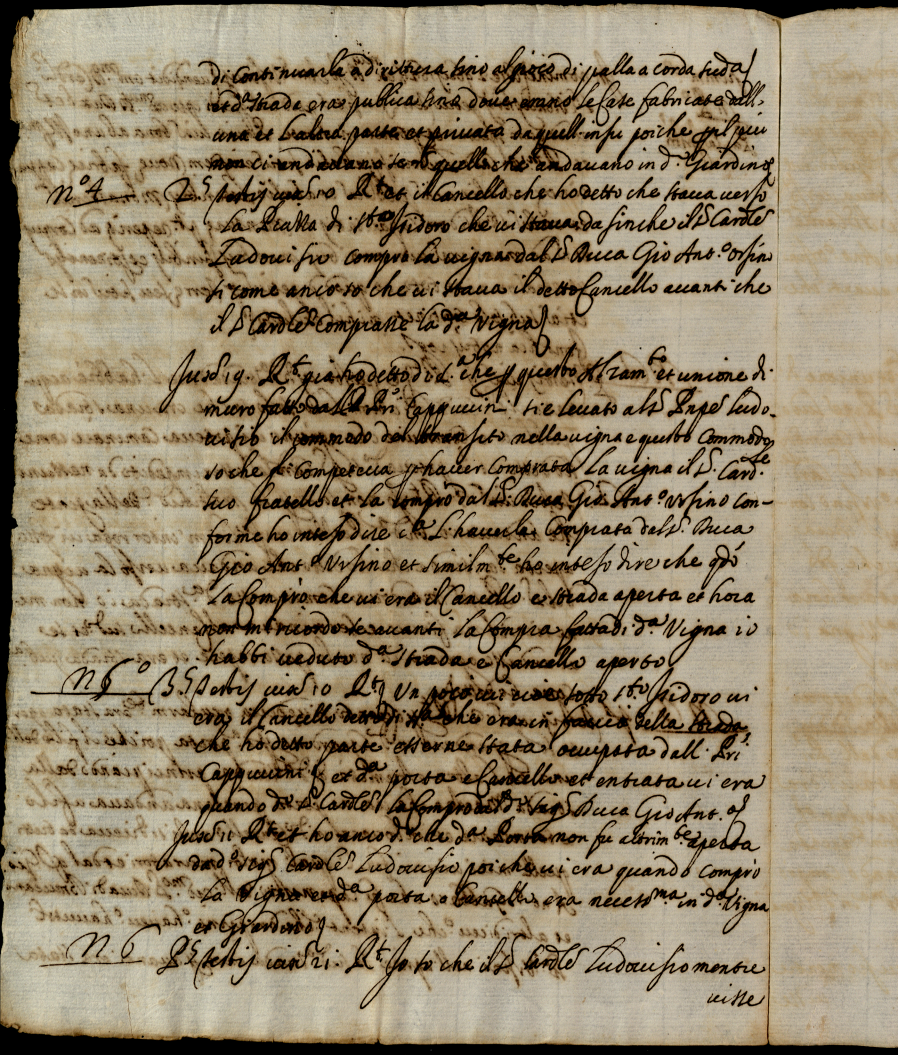 di continuarla à dirittura sino al gioco di palla a corda sud.a
et d.a strada era publica sino dove erano le Case fabricate dall'
una et l'altra parte et privata da quell in su poiche p il più
non ci andavano se n quelli che andavano in d.o Giardino
N.o 4 2.s testis iux.s 10 R.t et il Cancello che ho detto che stava verso
la Piazza di S.to Isidoro che vi stava da sinche il S. Card.le
Ludovisio comprò la vigna dal S. Duca Gio Ant.o Orsino
si come anco so che vi stava il detto Cancello avanti che
il S. Card.le comprasse la d.a Vigna
R.t già ho detto di s.a che p questo et unione di
muro fatto dalli PP.ri Cappuccini si è levato al S. Pnpe Ludo-
visio il commodo del transito nella vigna e questo Commodo
so che se li competeva p haver comprata la vigna il S. Card.le
suo fratello et la comprò dal S. Duca Gio Ant.o Ursino con-
forme ho inteso dire L'haverla Comprata dal S. Duca
Gio Ant.o Ursino et similm.te ho inteso dire che qdo
la Comprò che vi era il Cancello e strada aperta et hora
non mi ricordo se avanti la Compra fatta di d.a Vigna io
habbi veduto d.a strada e Cancello aperto
N 5.o 3.s testis iux.s 10 R.t Un poco sotto S.to Isidoro vi
era il Cancello che era in faccia della strada
che ho detto parte esserne stata occupata dall PP.ri
Cappuccini et d.a porta e Cancello et entrata vi era
quando d.o S. Card.le la comprò dal d.o Sig.r Duca Gio Ant.o
R.t et ho anco d.o che d.a Porta non fu altrim.te aperta
da d.o Sig.r Card.le Ludovisio poiche vi era quando comprò
la Vigna et d.a porta e Cancello era necess.ma in d.a Vigna
et Giardino
N. 6 P.s testis iux.s 21. R.t Io so che il S. Card.le Ludovisio mentre
visse